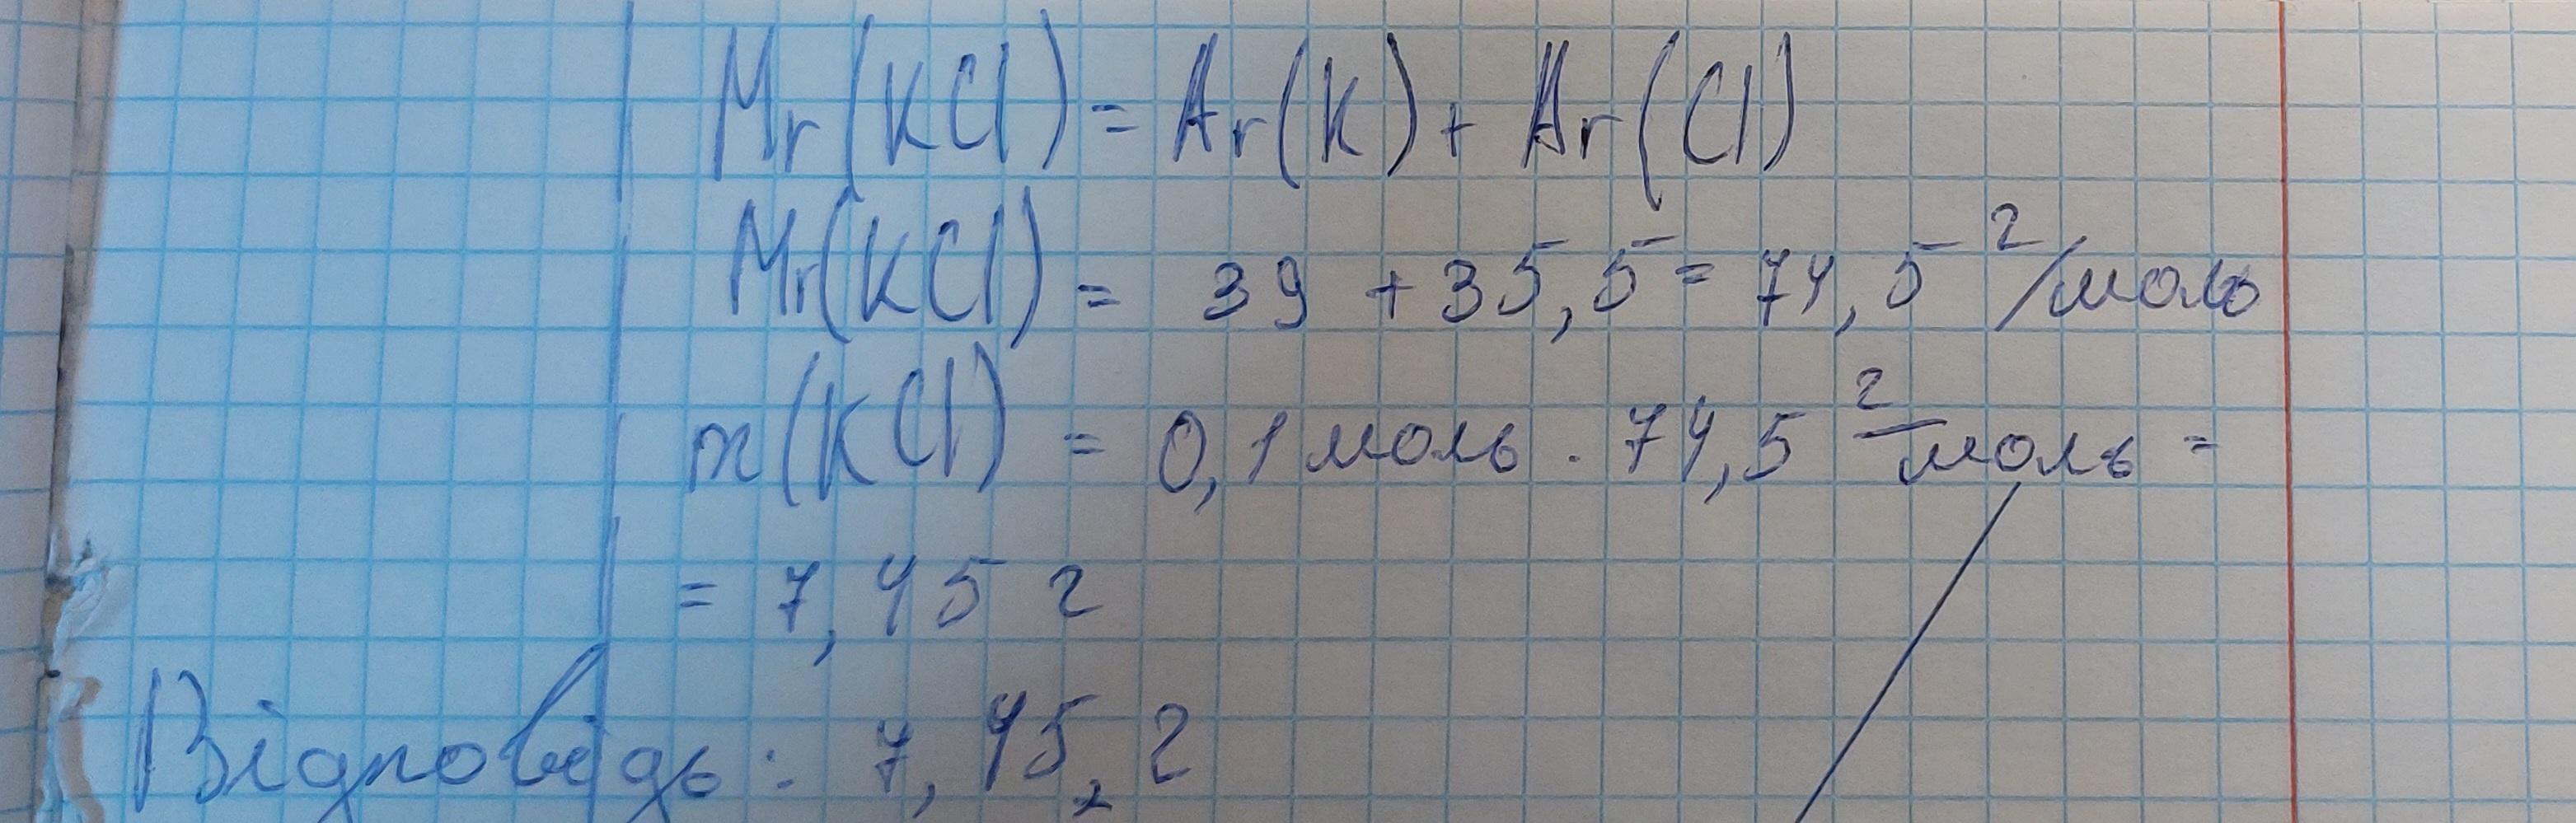 Mr(KCl) = Ar(K) + Ar(Cl)
Mr(KCl) = 39 + 35,5 = 74,5 г/моль
m(KCl) = 0,1 моль · 74,5 г/моль =
= 7,45 г
Відповідь: 7,45 г